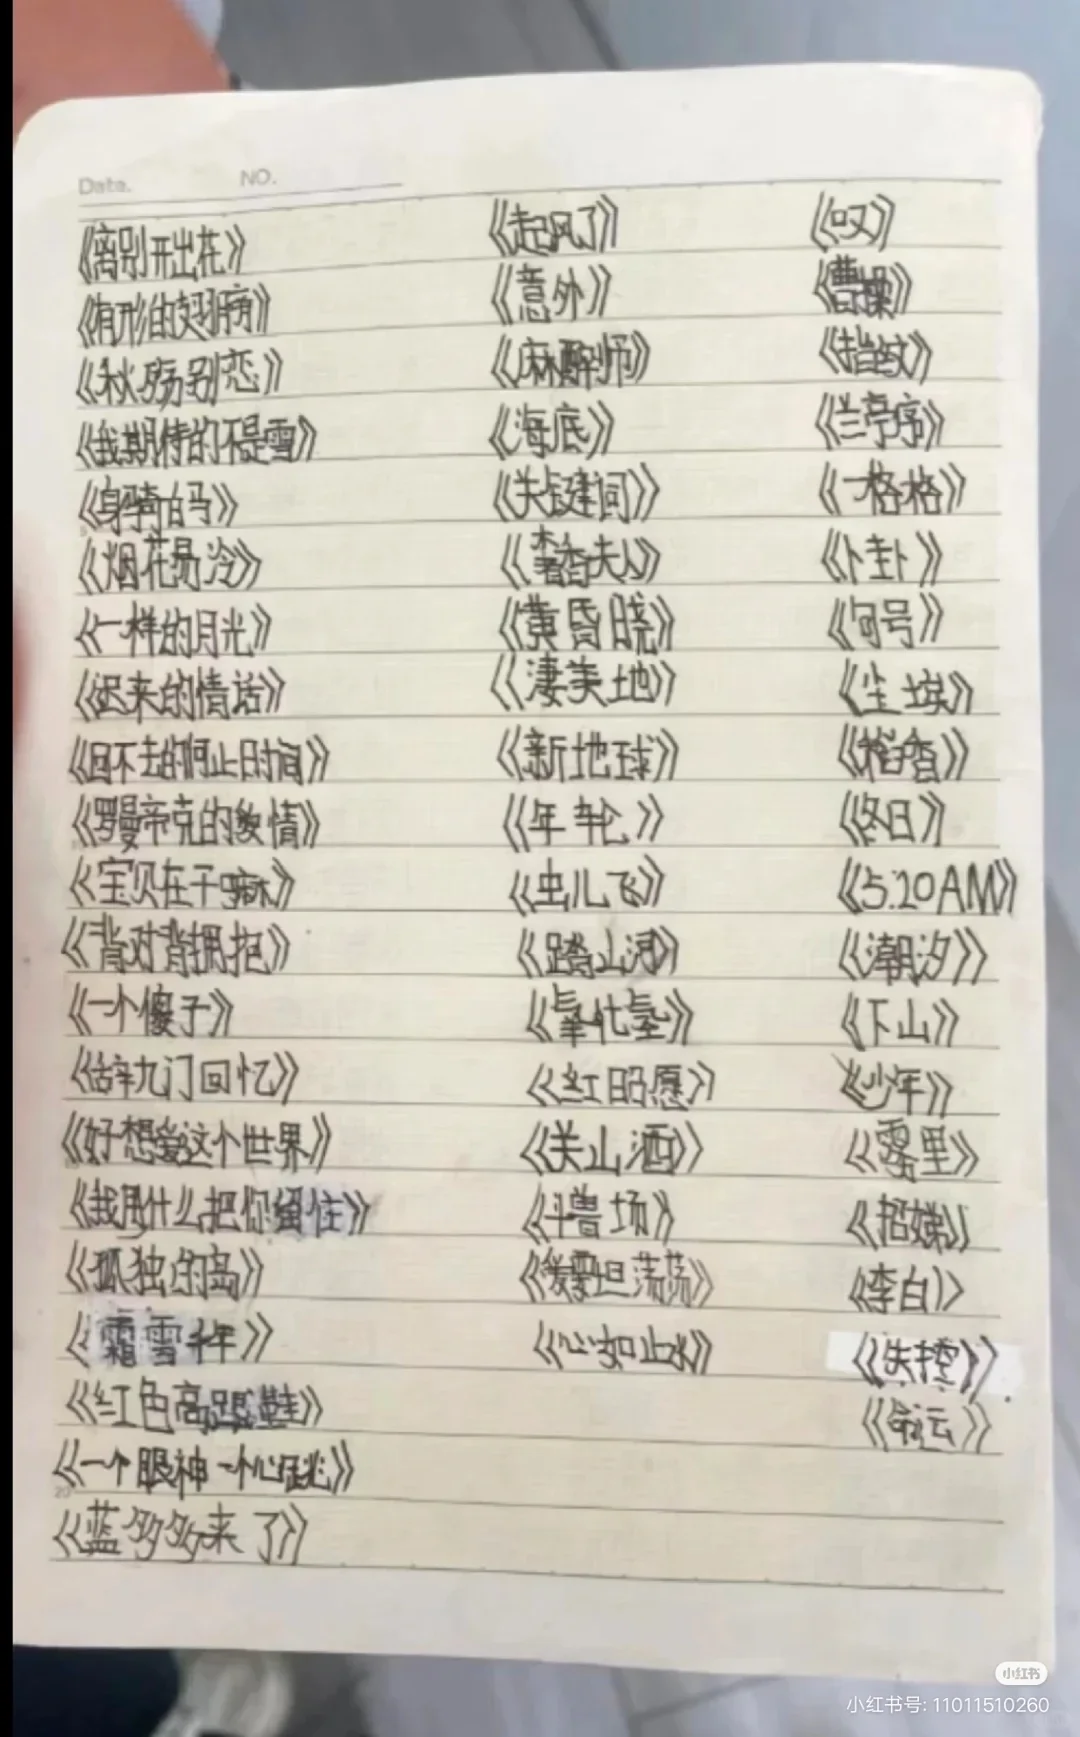 Date. NO.
《离别开出花》 《起风了》 《叹》
《有形的翅膀》 《意外》 《曹操》
《秋殇别恋》 《麻醉师》 《指纹》
《我期待的不是雪》 《海底》 《兰亭序》
《身骑白马》 《关键词》 《一格格》
《烟花易冷》 夫人》 《卜卦》
《一样的月光》 《黄昏晓》 《句号》
《迟来的情话》 《凄美地》 《尘埃》
《回不去的何止时间》 《新地球》 《稻香》
《罗曼蒂克的爱情》 《年轮》 《冬日》
《宝贝在干嘛》 《虫儿飞》 《5:20AM》
《背对背拥抱》 《踏山河》 《潮汐》
《一个傻子》 《下山》
《辞九门回忆》 《红昭愿》 《少年》
《好想爱这个世界》 《关山酒》 《雾里》
《我用什么把你留住》 《斗兽场》
《孤独的岛》 坦荡荡》 《李白》
《霜雪千年》 《心如止水》 《失控》
《红色高跟鞋》 《命运》
《一个眼神一个心跳》
《蓝多多来了》
小红书
小红书号: 11011510260